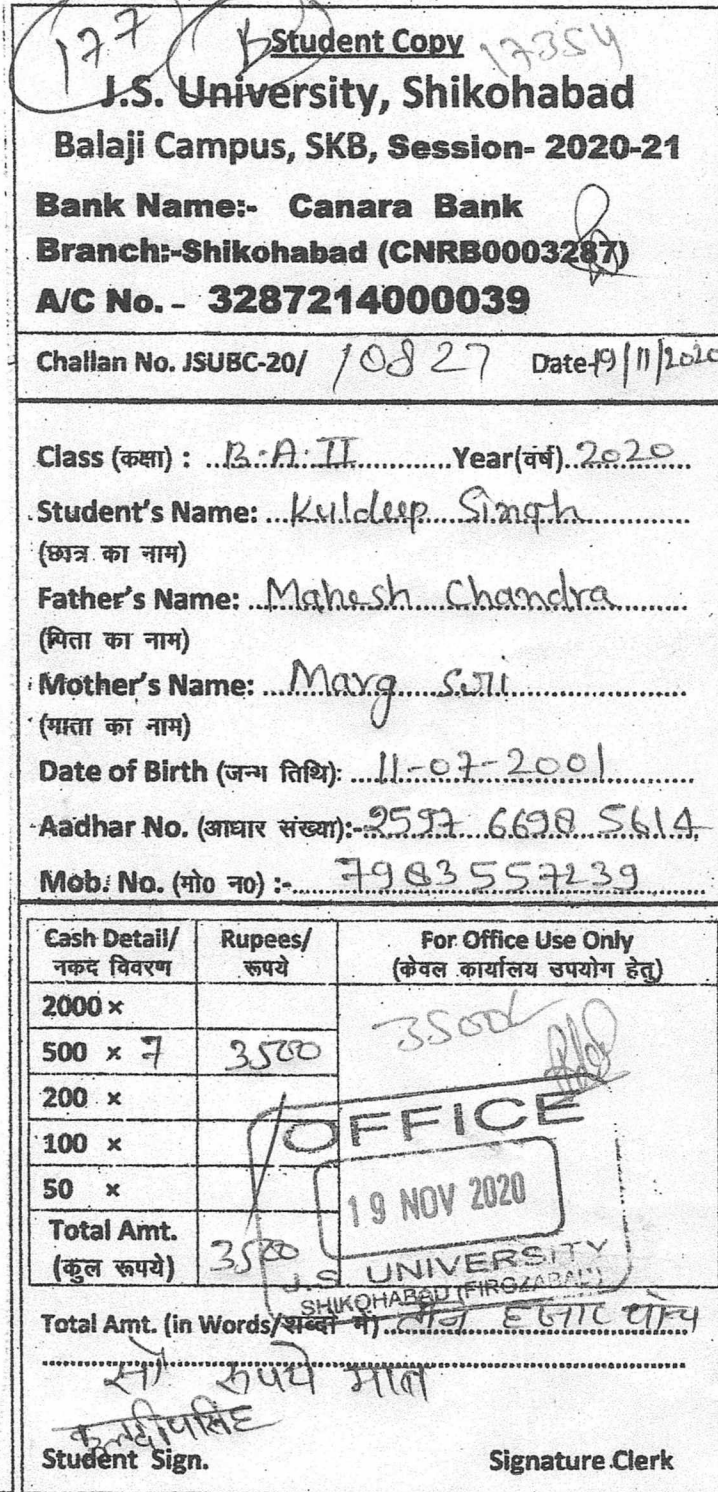 177 B Student Copy 17354
J.S. University, Shikohabad
Balaji Campus, SKB, Session- 2020-21
Bank Name:- Canara Bank
Branch:-Shikohabad (CNRB0003287)
A/C No. - 3287214000039
Challan No. JSUBC-20/ 10827 Date-19/11/2020
Class (कक्षा) : B.A. II Year(वर्ष) 2020
Student's Name: Kuldeep Singh
(छात्र का नाम)
Father's Name: Mahesh Chandra
(पिता का नाम)
Mother's Name: Marg
(माता का नाम)
Date of Birth (जन्म तिथि): 11-07-2001
Aadhar No. (आधार संख्या):- 2597 6698 5614
Mob. No. (मो0 न0) :- 7983557239
Cash Detail/ Rupees/ For Office Use Only
नकद विवरण रूपये (केवल कार्यालय उपयोग हेतु)
2000 ×
3500/-
500 × 7 3500
200 ×
OFFICE
100 ×
50 ×
19 NOV 2020
Total Amt.
(कुल रूपये) 3500
J.S. UNIVERSITY
SHIKOHABAD (FIROZABAD)
Total Amt. (in Words/शब्दों में) तीन हजार पांच
सौ रुपये मात्र
कुलदीपसिंह
Student Sign. Signature Clerk